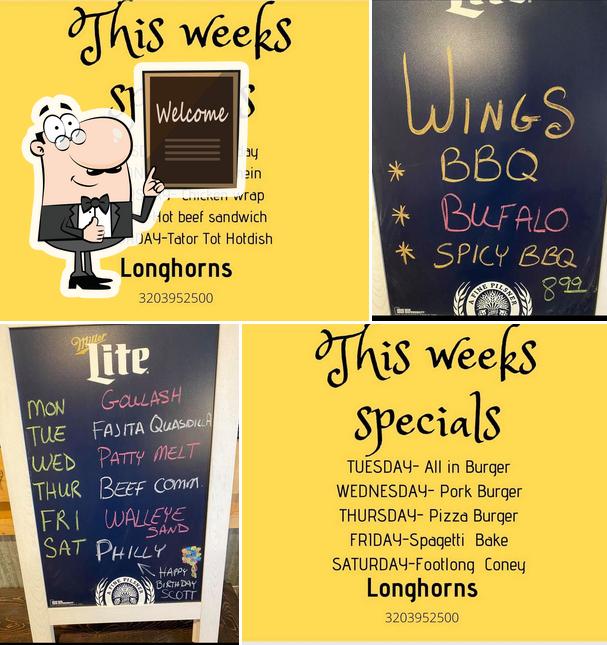 This weeks
Welcome
ay
ein
Chicken wrap
Hot beef sandwich
DAY-Tator Tot Hotdish
Longhorns
3203952500
WINGS
* BBQ
* BUFALO
* SPICY BBQ
8.99
A FINE PILSNER
Miller
Lite
MON GOULASH
TUE FAJITA QUASIDILLA
WED PATTY MELT
THUR BEEF COMM.
FRI WALLEYE
SAND
SAT PHILLY
HAPPY
BIRTHDAY
SCOTT
A FINE PILSNER
This weeks
specials
TUESDAY- All in Burger
WEDNESDAY- Pork Burger
THURSDAY- Pizza Burger
FRIDAY-Spagetti Bake
SATURDAY-Footlong Coney
Longhorns
3203952500